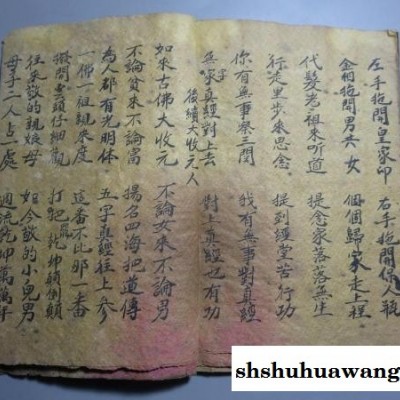 左手拖開皇家印 右手拖開佛人瓶
金相拖問男共女 個個歸家走上程
代髮老祖來听道 提愈家落落無生
行走里步來思念 提到經堂苦行功
你有無事參三関 我有無事對真經
無字真經對上去 對上真經也有功
後續大收元人
如來古佛大收元 不論女來不論男
不論貧來不論富 揚名四海把道傳
為人都有光明体 五字真經往上參
一佛一祖親來度 這番不比那一番
撥開雲頭仔細觀 打把乾坤倒顛
往來敬的親娘母 如今敬的小兒男
母子二人占一處 週流乾坤萬萬年
shshuhuawang